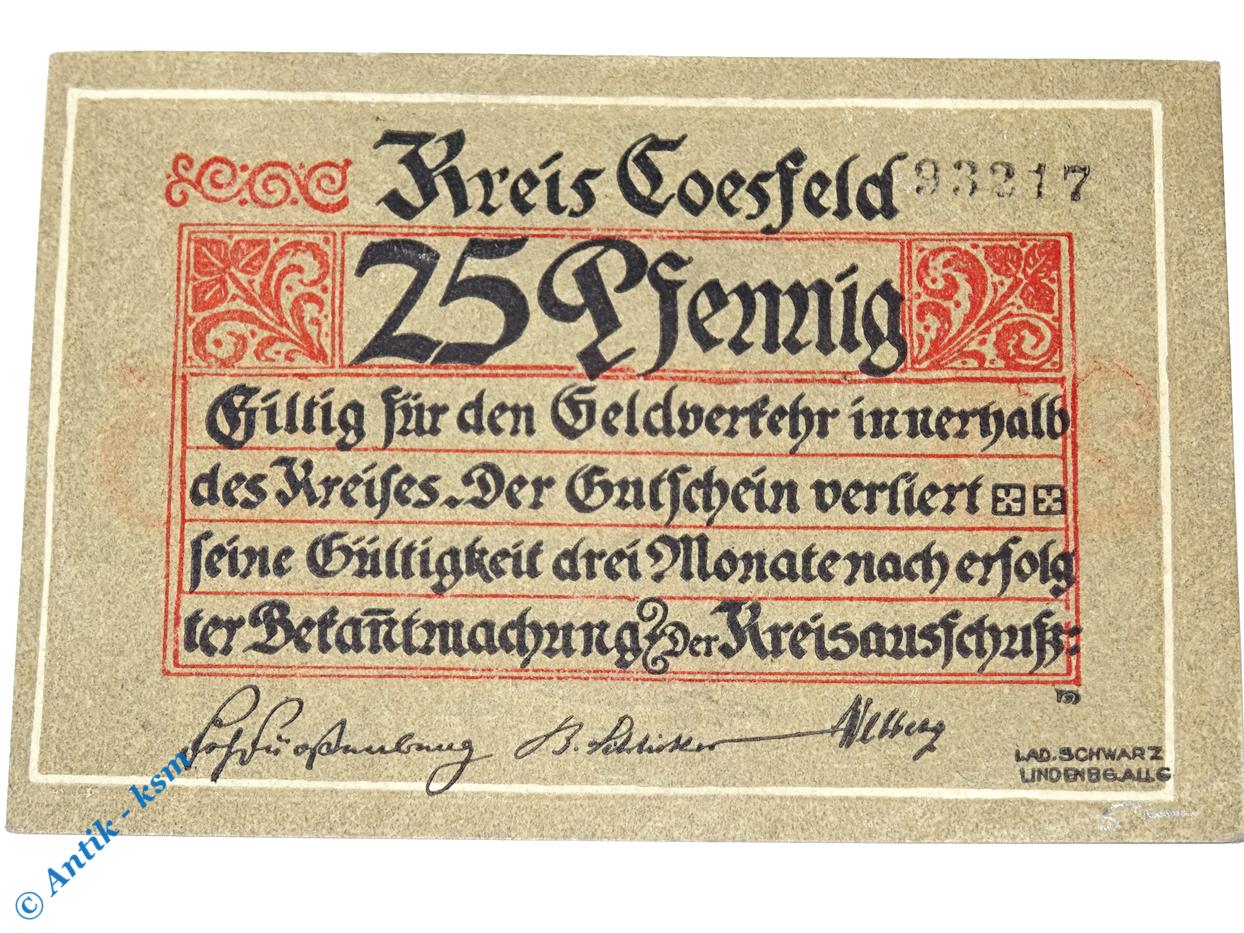 Kreis Coesfeld 93217
25 Pfennig
Giltig für den Geldverkehr innerhalb
des Kreises. Der Gutschein verliert
seine Gültigkeit drei Monate nach erfolg
ter Bekan̄tmachung. Der Kreisausschuß:
B. Schlicker
LAD. SCHWARZ
LINDENBG. ALLG
© Antik - ksm